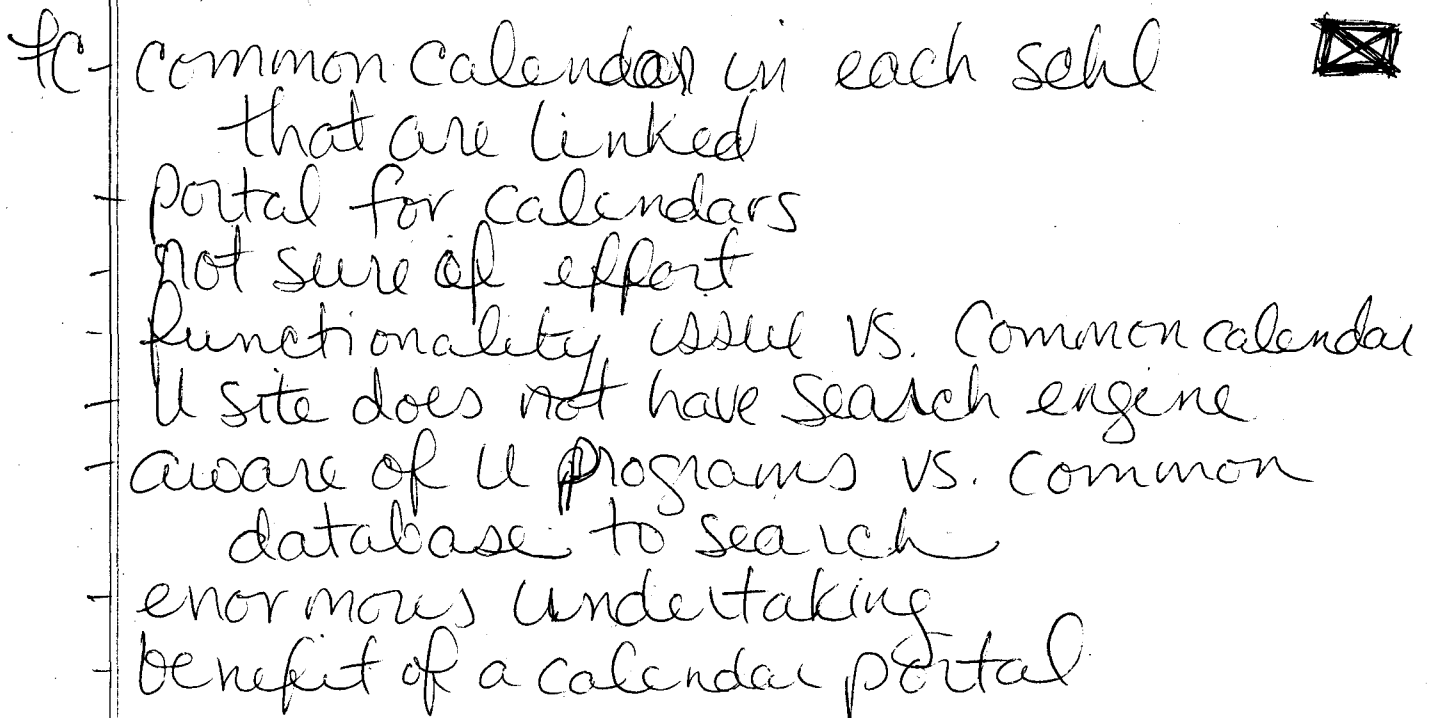 FC - common calendar in each schl
that are linked
- portal for calendars
- not sure of effort
- functionality issue vs. common calendar
- U site does not have search engine
- aware of U programs vs. common
database to search
- enormous undertaking
- benefit of a calendar portal